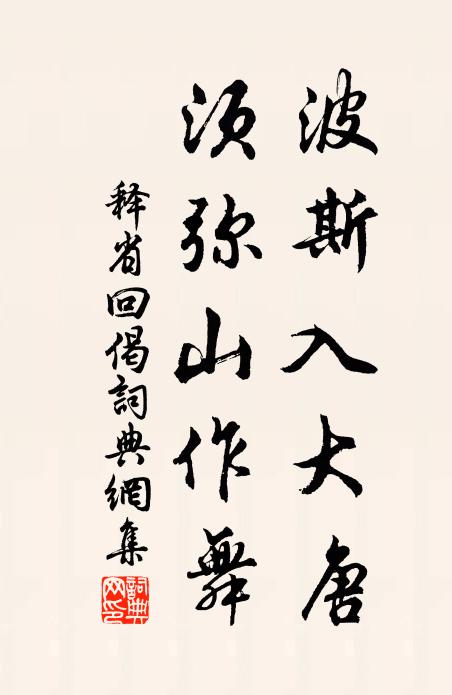 波斯入大唐
须弥山作舞
释省回偈詞典網集
詞典網印